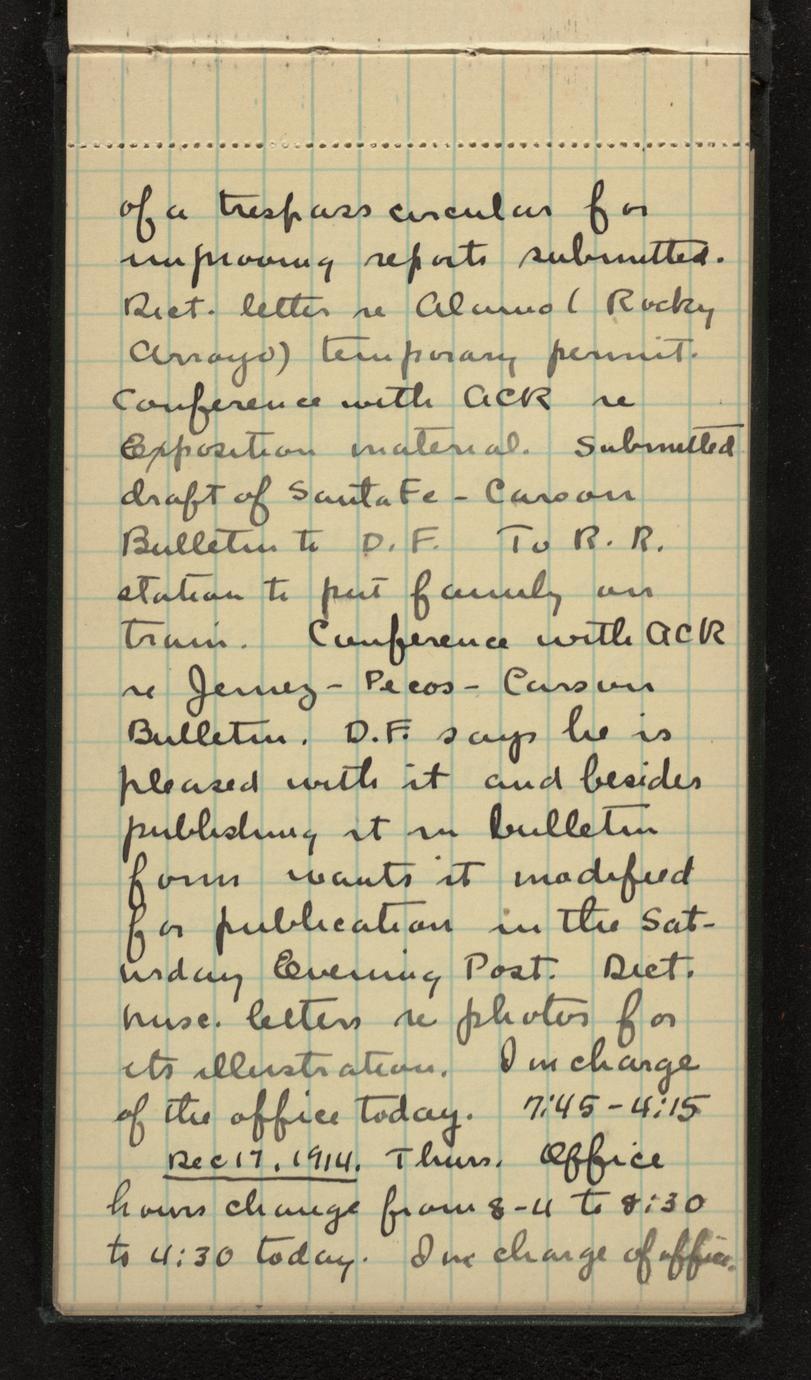 of a trespass circular for
improving reports submitted.
Dict. letter re Alamo (Rocky
Arroyo) temporary permit.
Conference with ACR re
Exposition material. Submitted
draft of Santa Fe - Carson
Bulletin to D.F. To R.R.
station to put family on
train. Conference with ACR
re Jemez - Pecos - Carson
Bulletin. D.F. says he is
pleased with it and besides
publishing it in bulletin
form wants it modified
for publication in the Sat-
urday Evening Post. Dict.
misc. letters re photos for
its illustration. I in charge
of the office today. 7:45-4:15
Dec 17, 1914. Thurs. Office
hours change from 8-4 to 8:30
to 4:30 today. I in charge of office.